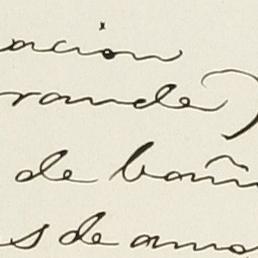 acion
rande)
de bañ
s de amo